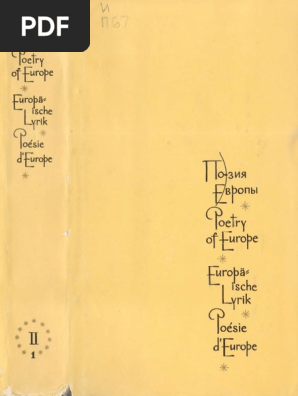 PDF
Poetry
of Europe
Europä-
ische
Lyrik
Poésie
d'Europe
II
1
И
П67
Поэзия
Европы
Poetry
of Europe
Europä-
ische
Lyrik
Poésie
d'Europe